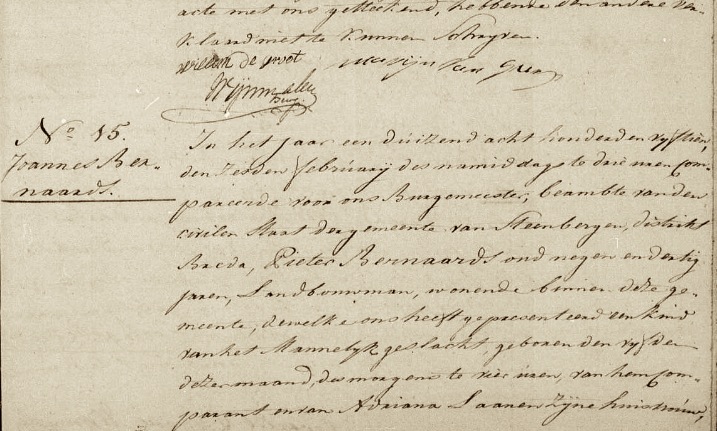 acte met ons geteekend, hebbende den andere ver-
klaard niet te kunnen Schryven.
willem de groot
N.º 15.
Joannes Ber-
naards.
In het Jaar een duizend acht honderd en vyftien,
den Zesden february des namiddags te drie uren Com-
pareerde voor ons Burgemeester, beambte van den
civilen Staat der gemeente van Steenbergen, district
Breda, Pieter Bernaards oud negen en dertig
jaren, Landbouwman, wonende binnen deze ge-
meente, dewelke ons heeft gepresenteerd een kind
van het Mannelyk geslacht, geboren den vyfden
dezer maand, des morgens te vier uren, van hem Com-
parant en van Adriana Laanen Zyne huisvrouw,